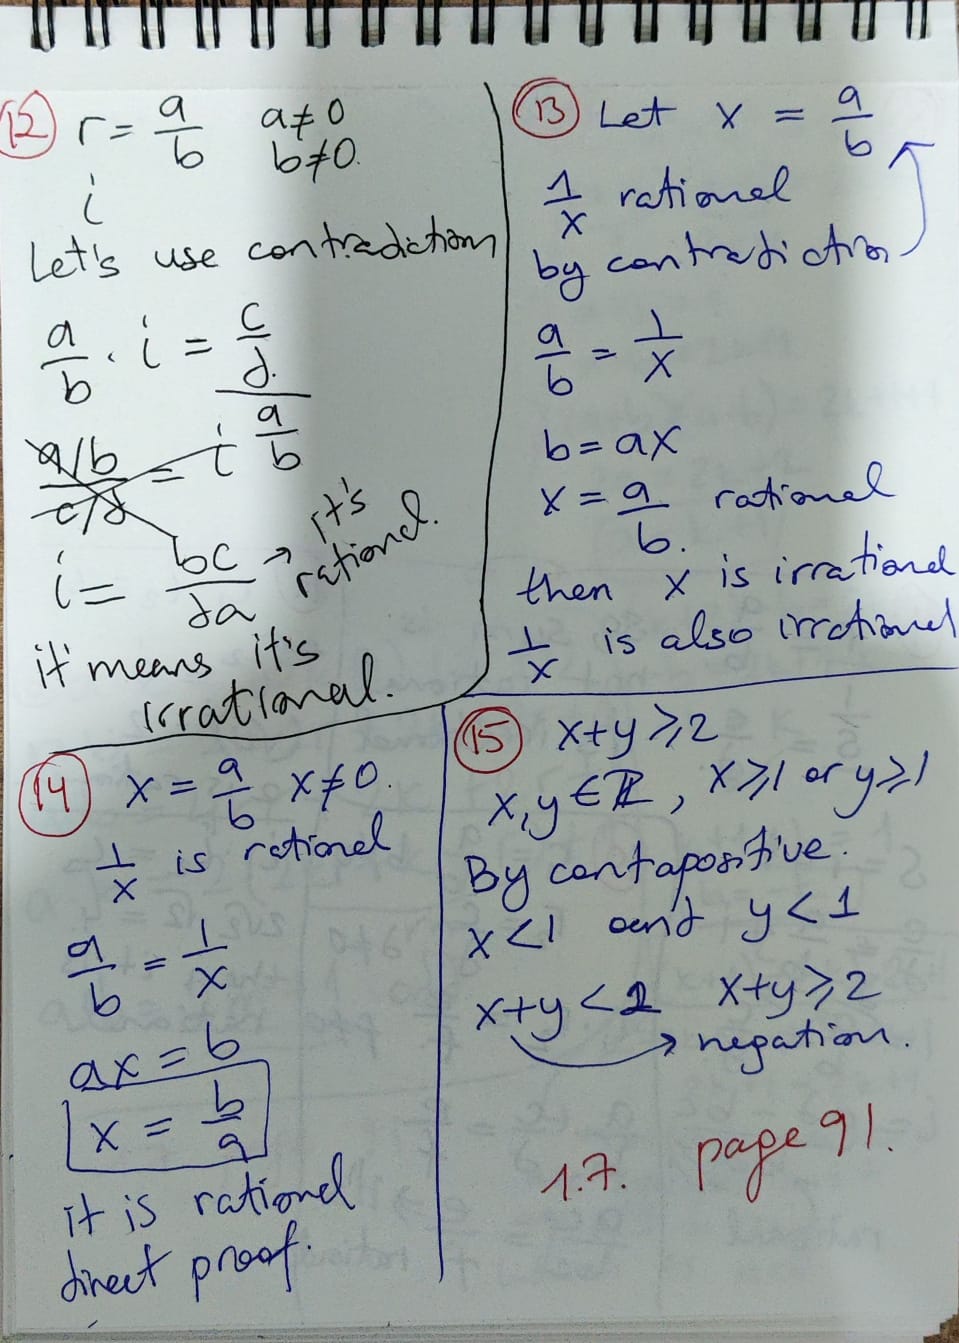 12 r = a/b a≠0
b≠0.
i
Let's use contradiction
a/b · i = c/d.
a/b
a/b / c/d = i
i = bc/da → it's
rational.
it means it's
irrational.
13 Let x = a/b
1/x rational
by contradiction
a/b = 1/x
b = ax
x = a/b. rational
then x is irrational
1/x is also irrational
14 x = a/b x≠0.
1/x is rational
a/b = 1/x
ax = b
x = b/a
it is rational
direct proof.
15 x+y ⩾ 2
x,y ∈ ℝ, x⩾1 or y⩾1
By contapositive.
x<1 and y<1
x+y < 2 x+y ⩾ 2
→ negation.
1.7. page 91.